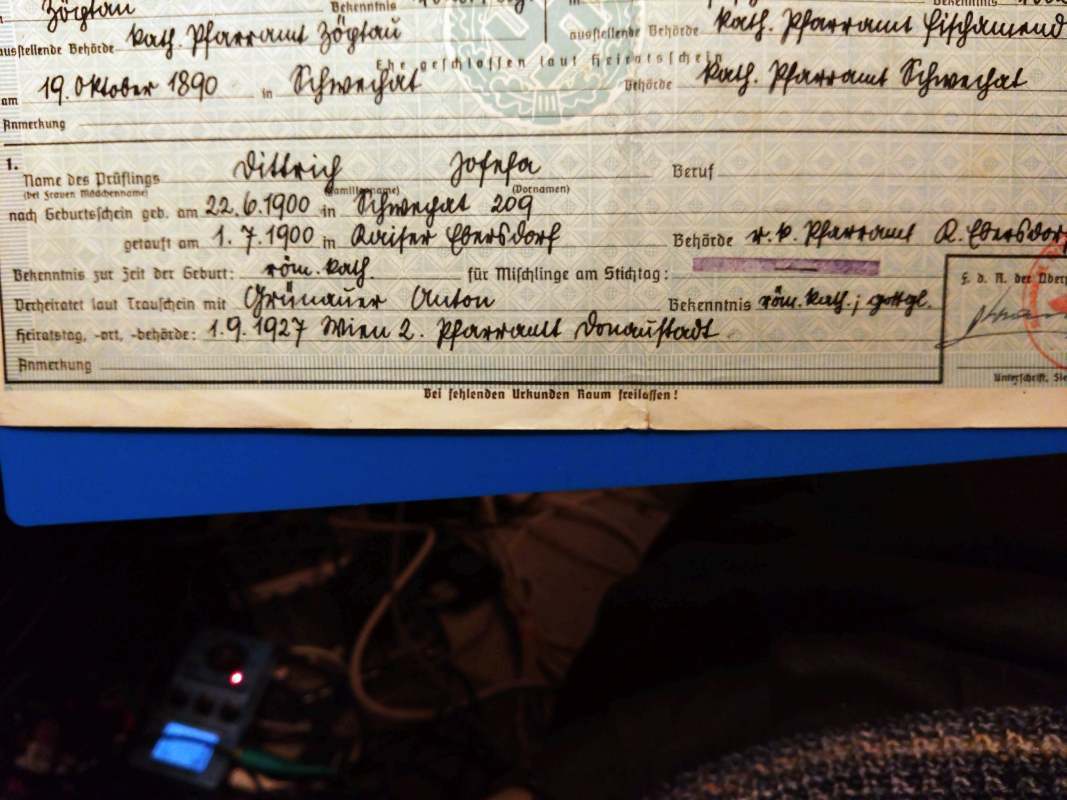 Zöptau Bekenntnis in
ausstellende Behörde kath. Pfarramt Zöptau ausstellende Behörde kath. Pfarramt Fischamend
Ehe geschlossen laut Heiratsschein
am 19. Oktober 1890 in Schwechat Behörde kath. Pfarramt Schwechat
Anmerkung
1. Name des Prüflings Dittrich Josefa Beruf
(bei Frauen Mädchenname) (Familienname) (Vornamen)
nach Geburtsschein geb. am 22.6.1900 in Schwechat 209
getauft am 1.7.1900 in Kaiser Ebersdorf Behörde r. k. Pfarramt K. Ebersdorf
Bekenntnis zur Zeit der Geburt: röm. kath. für Mischlinge am Stichtag:
Verheiratet laut Trauschein mit Grünauer Anton Bekenntnis röm. kath.; gottgl.
Heiratstag, -ort, -behörde: 1.9.1927 Wien 2. Pfarramt Donaustadt
Anmerkung
F. d. R. der
Unterschrift,
Bei fehlenden Urkunden Raum freilassen!